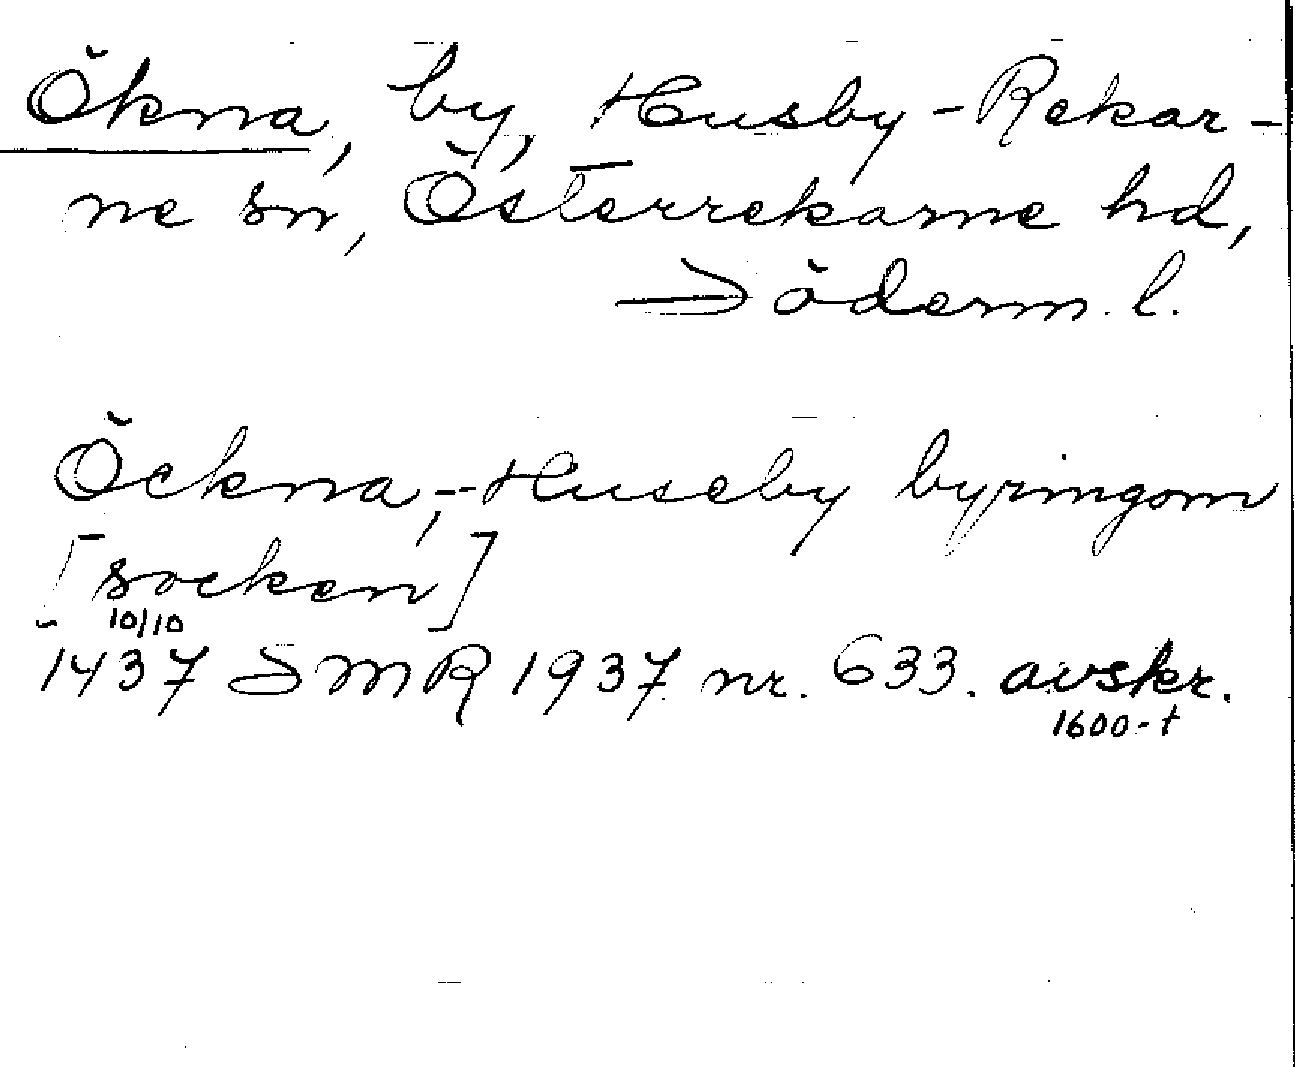 Ökna, by, Husby-Rekar-
ne sn, Österrekarne hd,
Söderm. l.
Öckna, - Huseby byringom
[socken]
10/10
1437 SMR 1937 nr. 633. avskr.
1600-t